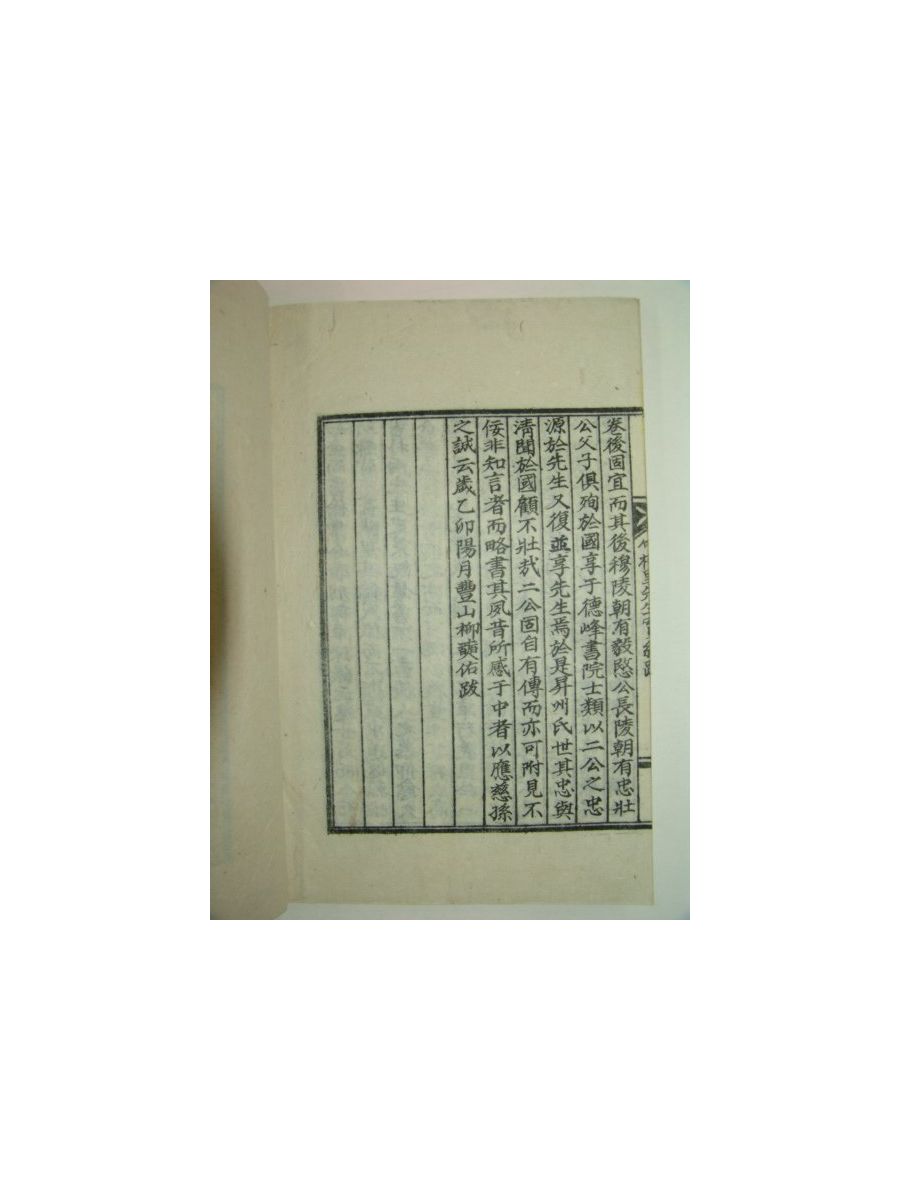 卷後固宜而其後穆陵朝有毅愍公長陵朝有忠壯
公父子俱殉於國享于德峰書院士類以二公之忠
源於先生又復並享先生焉於是昇州氏世其忠與
淸聞於國顧不壯哉二公固自有傳而亦可附見不
佞非知言者而略書其夙昔所感于中者以應慈孫
之誠云歲乙卯陽月豐山柳佑跋